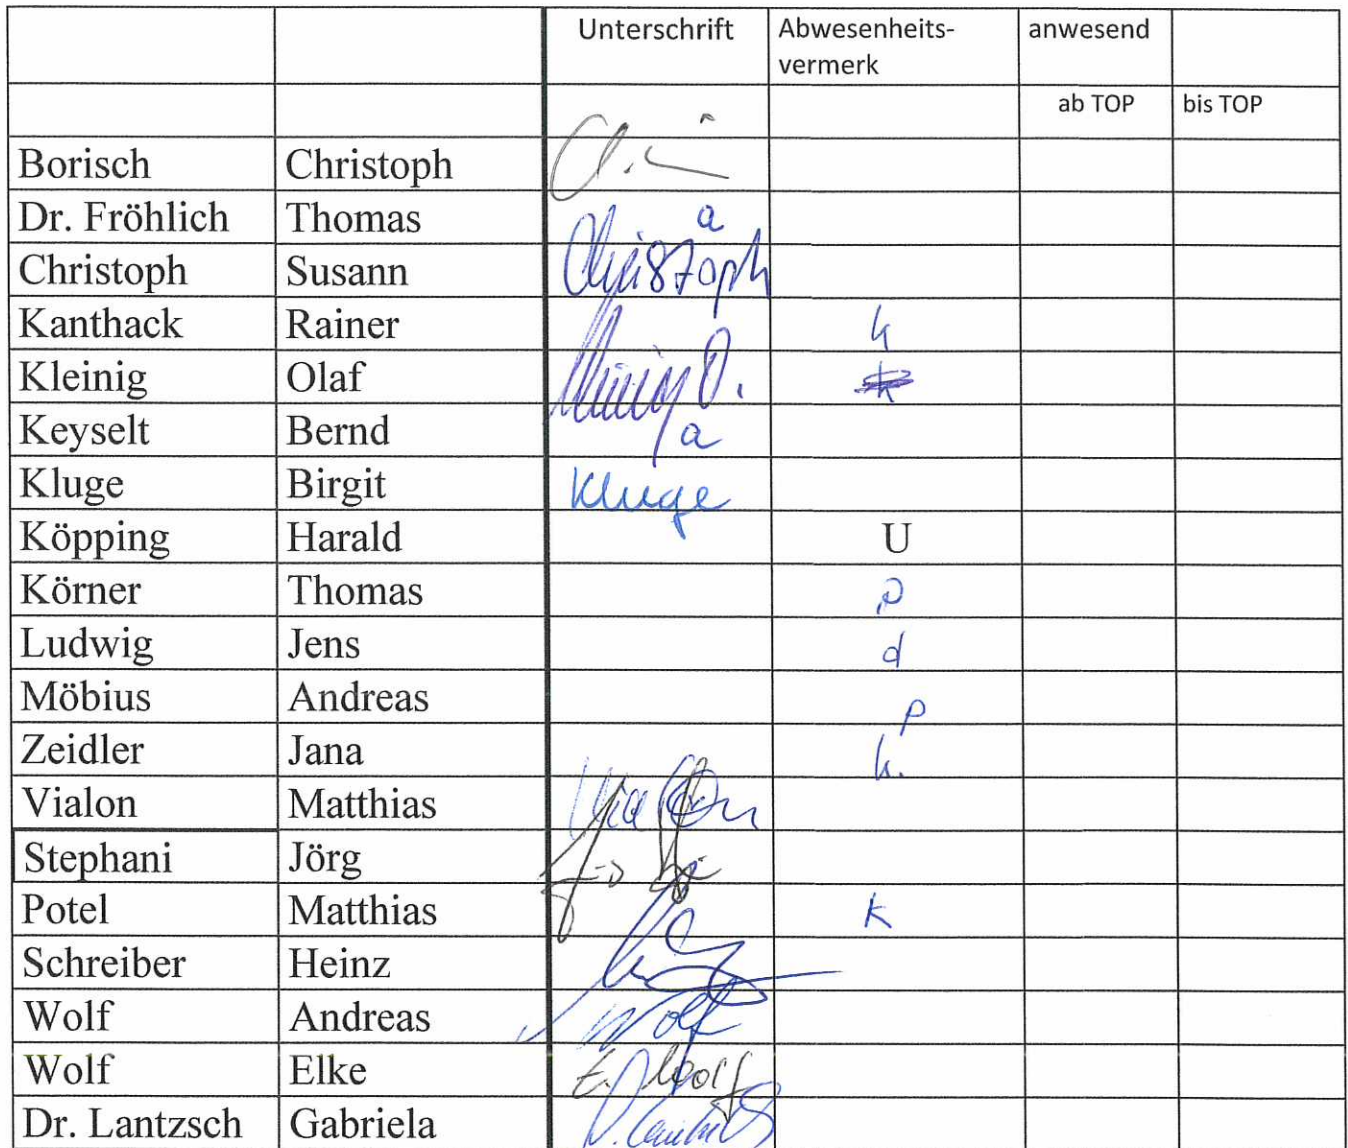 Unterschrift Abwesenheits- anwesend
vermerk
ab TOP bis TOP
Borisch Christoph
Dr. Fröhlich Thomas a
Christoph Susann Christoph
Kanthack Rainer
Kleinig Olaf
Keyselt Bernd a
Kluge Birgit Kluge
Köpping Harald U
Körner Thomas
Ludwig Jens d
Möbius Andreas p
Zeidler Jana
Vialon Matthias Vialon
Stephani Jörg
Potel Matthias K
Schreiber Heinz
Wolf Andreas Wolf
Wolf Elke E. Wolf
Dr. Lantzsch Gabriela